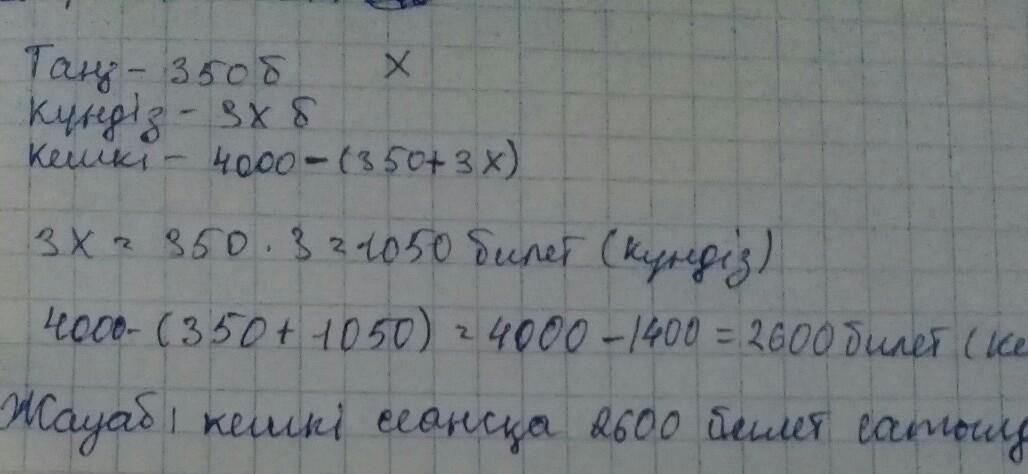 Таңғ - 350 б х
Күндіз - 3х б
Кешкі - 4000 - (350 + 3х)
3х = 350 · 3 = 1050 билет (күндіз)
4000 - (350 + 1050) = 4000 - 1400 = 2600 билет (ке
Жауабы кешкі сеансқа 2600 билет сатылд